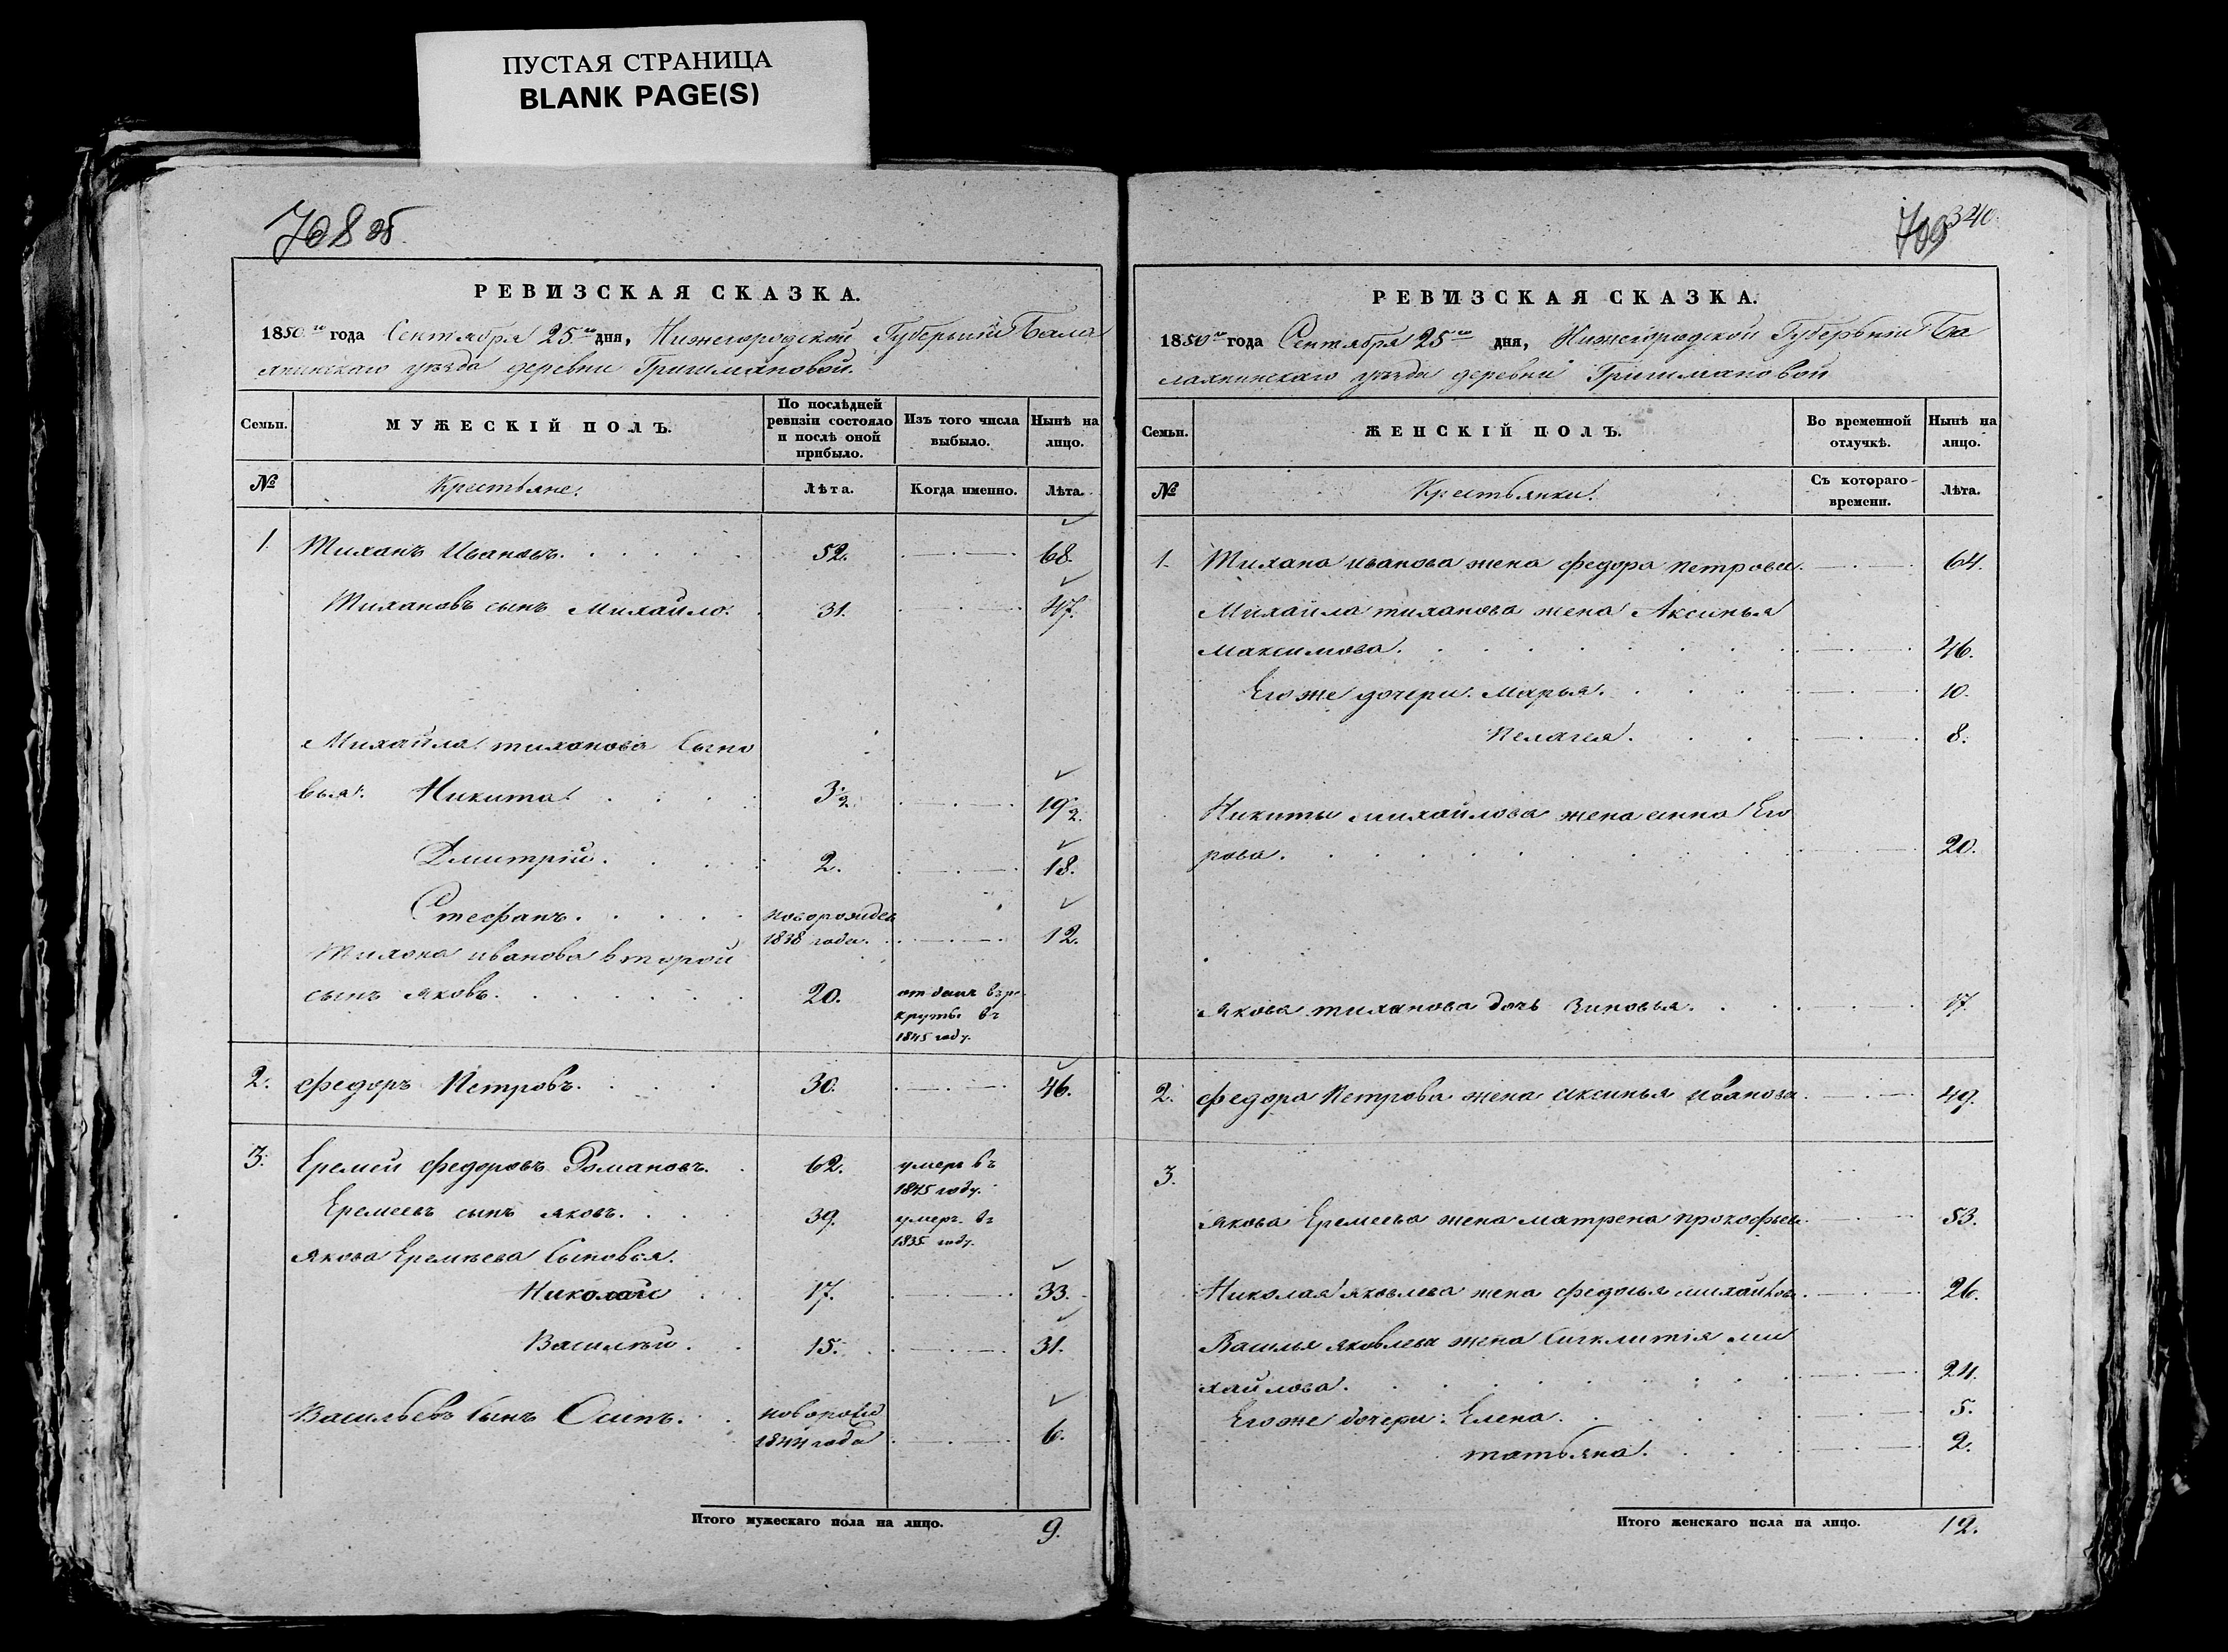 ПУСТАЯ СТРАНИЦА
BLANK PAGE(S)
708 об.
РЕВИЗСКАЯ СКАЗКА.
1850го года Сентября 25го дня, Нижегородской Губерніи Бала
хнинскаго уѣзда деревни Гришмановой.
Семьи.
МУЖЕСКІЙ ПОЛЪ.
По послѣдней ревизіи состояло и послѣ оной прибыло.
Изъ того числа выбыло.
Нынѣ на лицо.
№
Крестьяне.
Лѣта.
Когда именно.
Лѣта.
1. Тиханъ Ивановъ. 52. 68.
Тихановъ сынъ Михайло. 31. 47.
Михайла тиханова Сыно
вья: Никита. 3½ 19½.
Дмитрій. 2. 18.
Стефанъ. новорожден
1838 года. 12.
Тихона иванова второй
сынъ яковъ. 20. отданъ врѣ
круты въ
1845 году.
2. федоръ Петровъ. 30. 46.
3. Еремей федоровъ Романовъ. 62. умеръ въ
1845 году.
Еремеевъ сынъ яковъ. 39. умеръ въ
1835 году.
якова Еремѣева Сыновья.
Николай 17. 33.
Василѣй. 15. 31.
Васильевъ Сынъ Осипъ. новорожд
1844 года 6.
Итого мужескаго пола на лицо. 9.
709 340
РЕВИЗСКАЯ СКАЗКА.
1850го года Сентября 25го дня, Нижегородской Губерніи Ба
лахнинскаго уѣзда деревни Гришмановой
Семьи.
ЖЕНСКІЙ ПОЛЪ.
Во временной отлучкѣ.
Нынѣ на лицо.
№
Крестьянки.
Съ котораго времени.
Лѣта.
1. Тихана иванова жена федора петрова. 64.
Михайла тиханова жена Аксинья
Максимова. 46.
Егоже дочери. Марья. 10.
Пелагея. 8.
Никиты михайлова жена анна Его
рова. 20.
якова тиханова дочь Зиновья. 17.
2. федора Петрова жена аксинья иванова. 49.
3.
якова Еремеева жена матрена прокофьев. 53.
Николая яковлева жена федосья михайлов. 26.
Василья яковлева жена Сигклитія ми
хайлова. 24.
Егоже дочери: Елена. 5.
татьяна. 2.
Итого женскаго пола на лицо. 12.